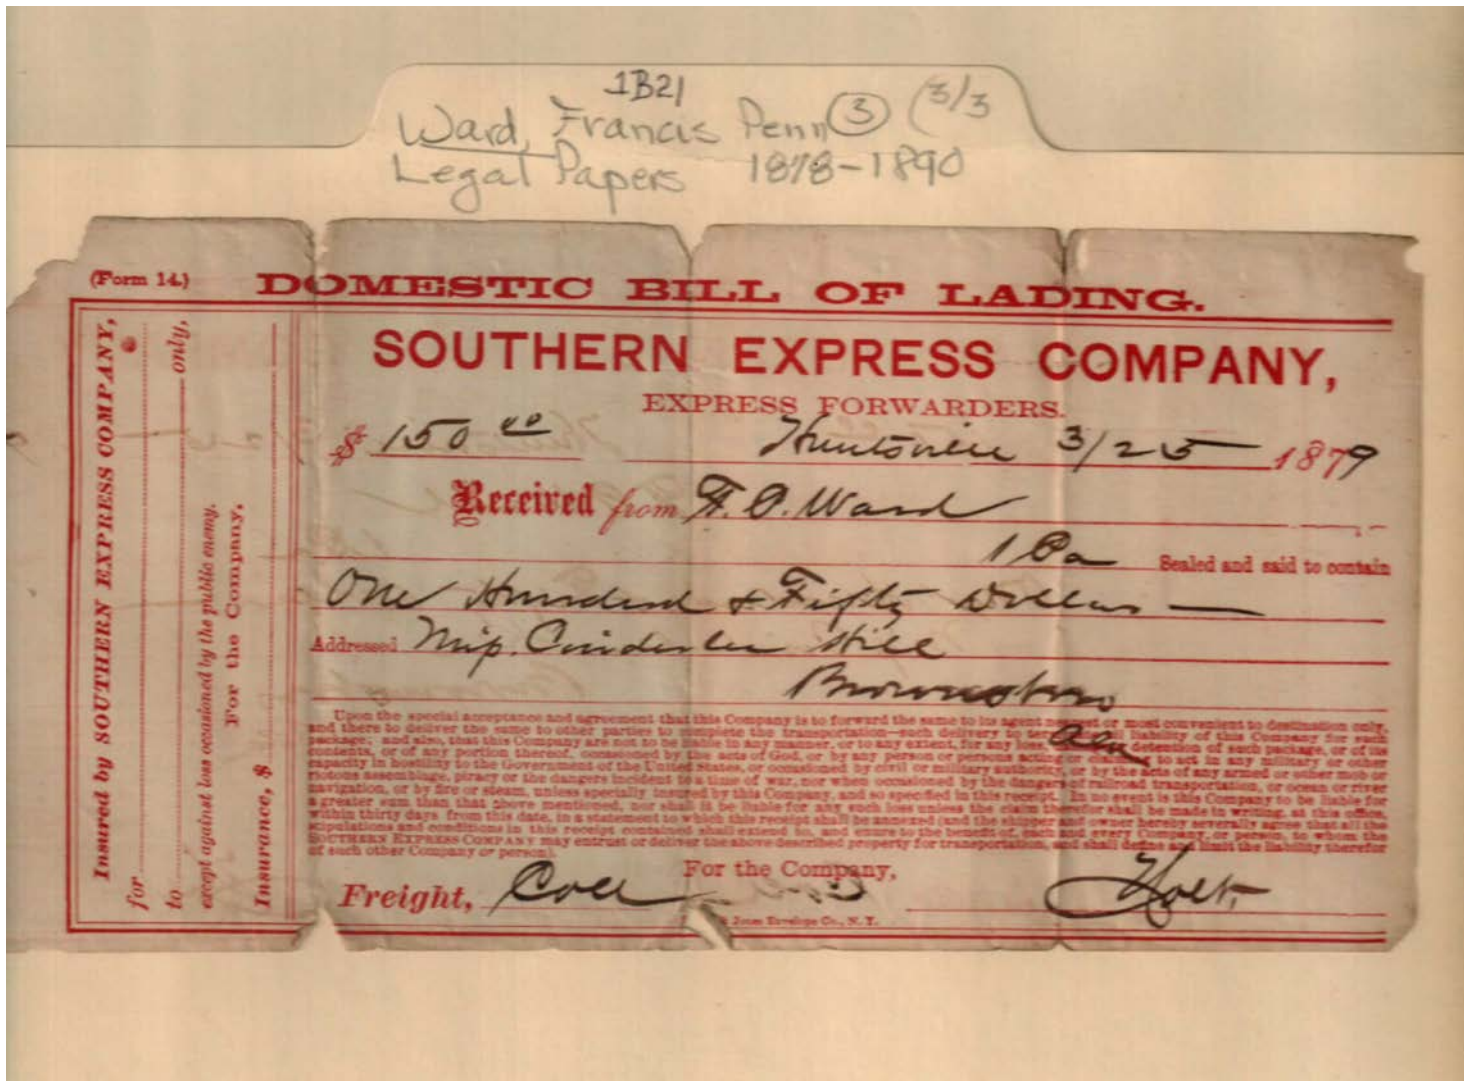 1B21
Ward, Francis Penn (3) (3/3
Legal Papers 1878-1890
(Form 14.)
DOMESTIC BILL OF LADING.
Insured by SOUTHERN EXPRESS COMPANY,
for
to only,
except against loss occasioned by the public enemy.
For the Company,
Insurance, $
SOUTHERN EXPRESS COMPANY,
EXPRESS FORWARDERS.
$ 150 00 Huntsville 3/25 1879
Received from F. P. Ward
1 Pa Sealed and said to contain
One Hundred & Fifty Dollars
Addressed Miss. Hill
Brownsboro
Ala
Upon the special acceptance and agreement that this Company is to forward the same to its agent nearest or most convenient to destination only,
and there to deliver the same to other parties to complete the transportation—such delivery to liability of this Company for such
package; and also, that this Company are not to be liable in any manner, or to any extent, for any loss, detention of such package, or of its
contents, or of any portion thereof, occasioned by the acts of God, or by any person or persons acting or to act in any military or other
capacity in hostility to the Government of the United States, or occasioned by civil or military authority, or by the acts of any armed or other mob or
riotous assemblage, piracy or the dangers incident to a time of war, nor when occasioned by the dangers of railroad transportation, or ocean or river
navigation, or by fire or steam, unless specially insured by this Company, and so specified in this receipt. In no event is this Company to be liable for
a greater sum than that above mentioned, nor shall it be liable for any such loss unless the claim therefor shall be made in writing, at this office,
within thirty days from this date, in a statement to which this receipt shall be annexed (and the shipper and owner hereby severally agree that all the
stipulations and conditions in this receipt contained shall extend to, and enure to the benefit of, each and every Company, or person, to whom the
SOUTHERN EXPRESS COMPANY may entrust or deliver the above described property for transportation, and shall define and limit the liability therefor
of such other Company or person).
For the Company,
Freight, Coll Holt.
Jones Envelope Co., N. Y.